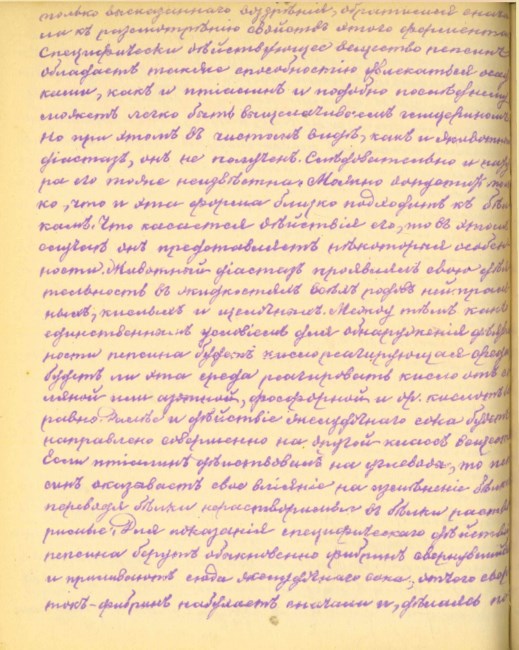 только высказаннаго воззрѣнія, обратимся снача
ла къ разсмотрѣнію свойствъ этого фермента.
Специфически дѣйствующее вещество пепсинъ
обладаетъ такою способностію увлекаться осад
ками, какъ и птіалинъ и подобно послѣднему
можетъ легко быть выщелачиваемъ глицериномъ
Но при этомъ въ чистомъ видѣ, какъ и животный
діастазъ, онъ не полученъ. Слѣдовательно и нату
ра его тоже неизвѣстна. Можно допустить толь
ко, что и эта форма близко подходитъ къ бѣл
камъ. Что касается дѣйствія его, то въ этомъ
случаѣ онъ представляетъ нѣкоторыя особен
ности. Животный діастазъ проявлялъ свою дѣя
тельность въ жидкостяхъ всѣхъ родовъ нейтраль
ныхъ, кислыхъ и щелочныхъ. Между тѣмъ какъ
единственнымъ условіемъ для обнаруженія дѣятель
ности пепсина будетъ кислореагирующая среда
будетъ ли эта среда реагировать кисло отъ со
ляной или азотной, фосфорной и др. кислотъ
равно. Далѣе и дѣйствіе желудочнаго сока будетъ
направлено совершенно на другой классъ веществ
Если птіалинъ дѣйствовалъ на углеводы, то пеп
синъ оказываетъ свое вліяніе на измѣненіе бѣлк
переводя бѣлки нерастворимые въ бѣлки раство
римые. Для показанія специфическаго дѣйствія
пепсина берутъ обыкновенно фибринъ свернувшійся
и приливаютъ сюда желудочнаго сока, отчего сверт
токъ-фибринъ набухаетъ сначала и, дѣлаясь по